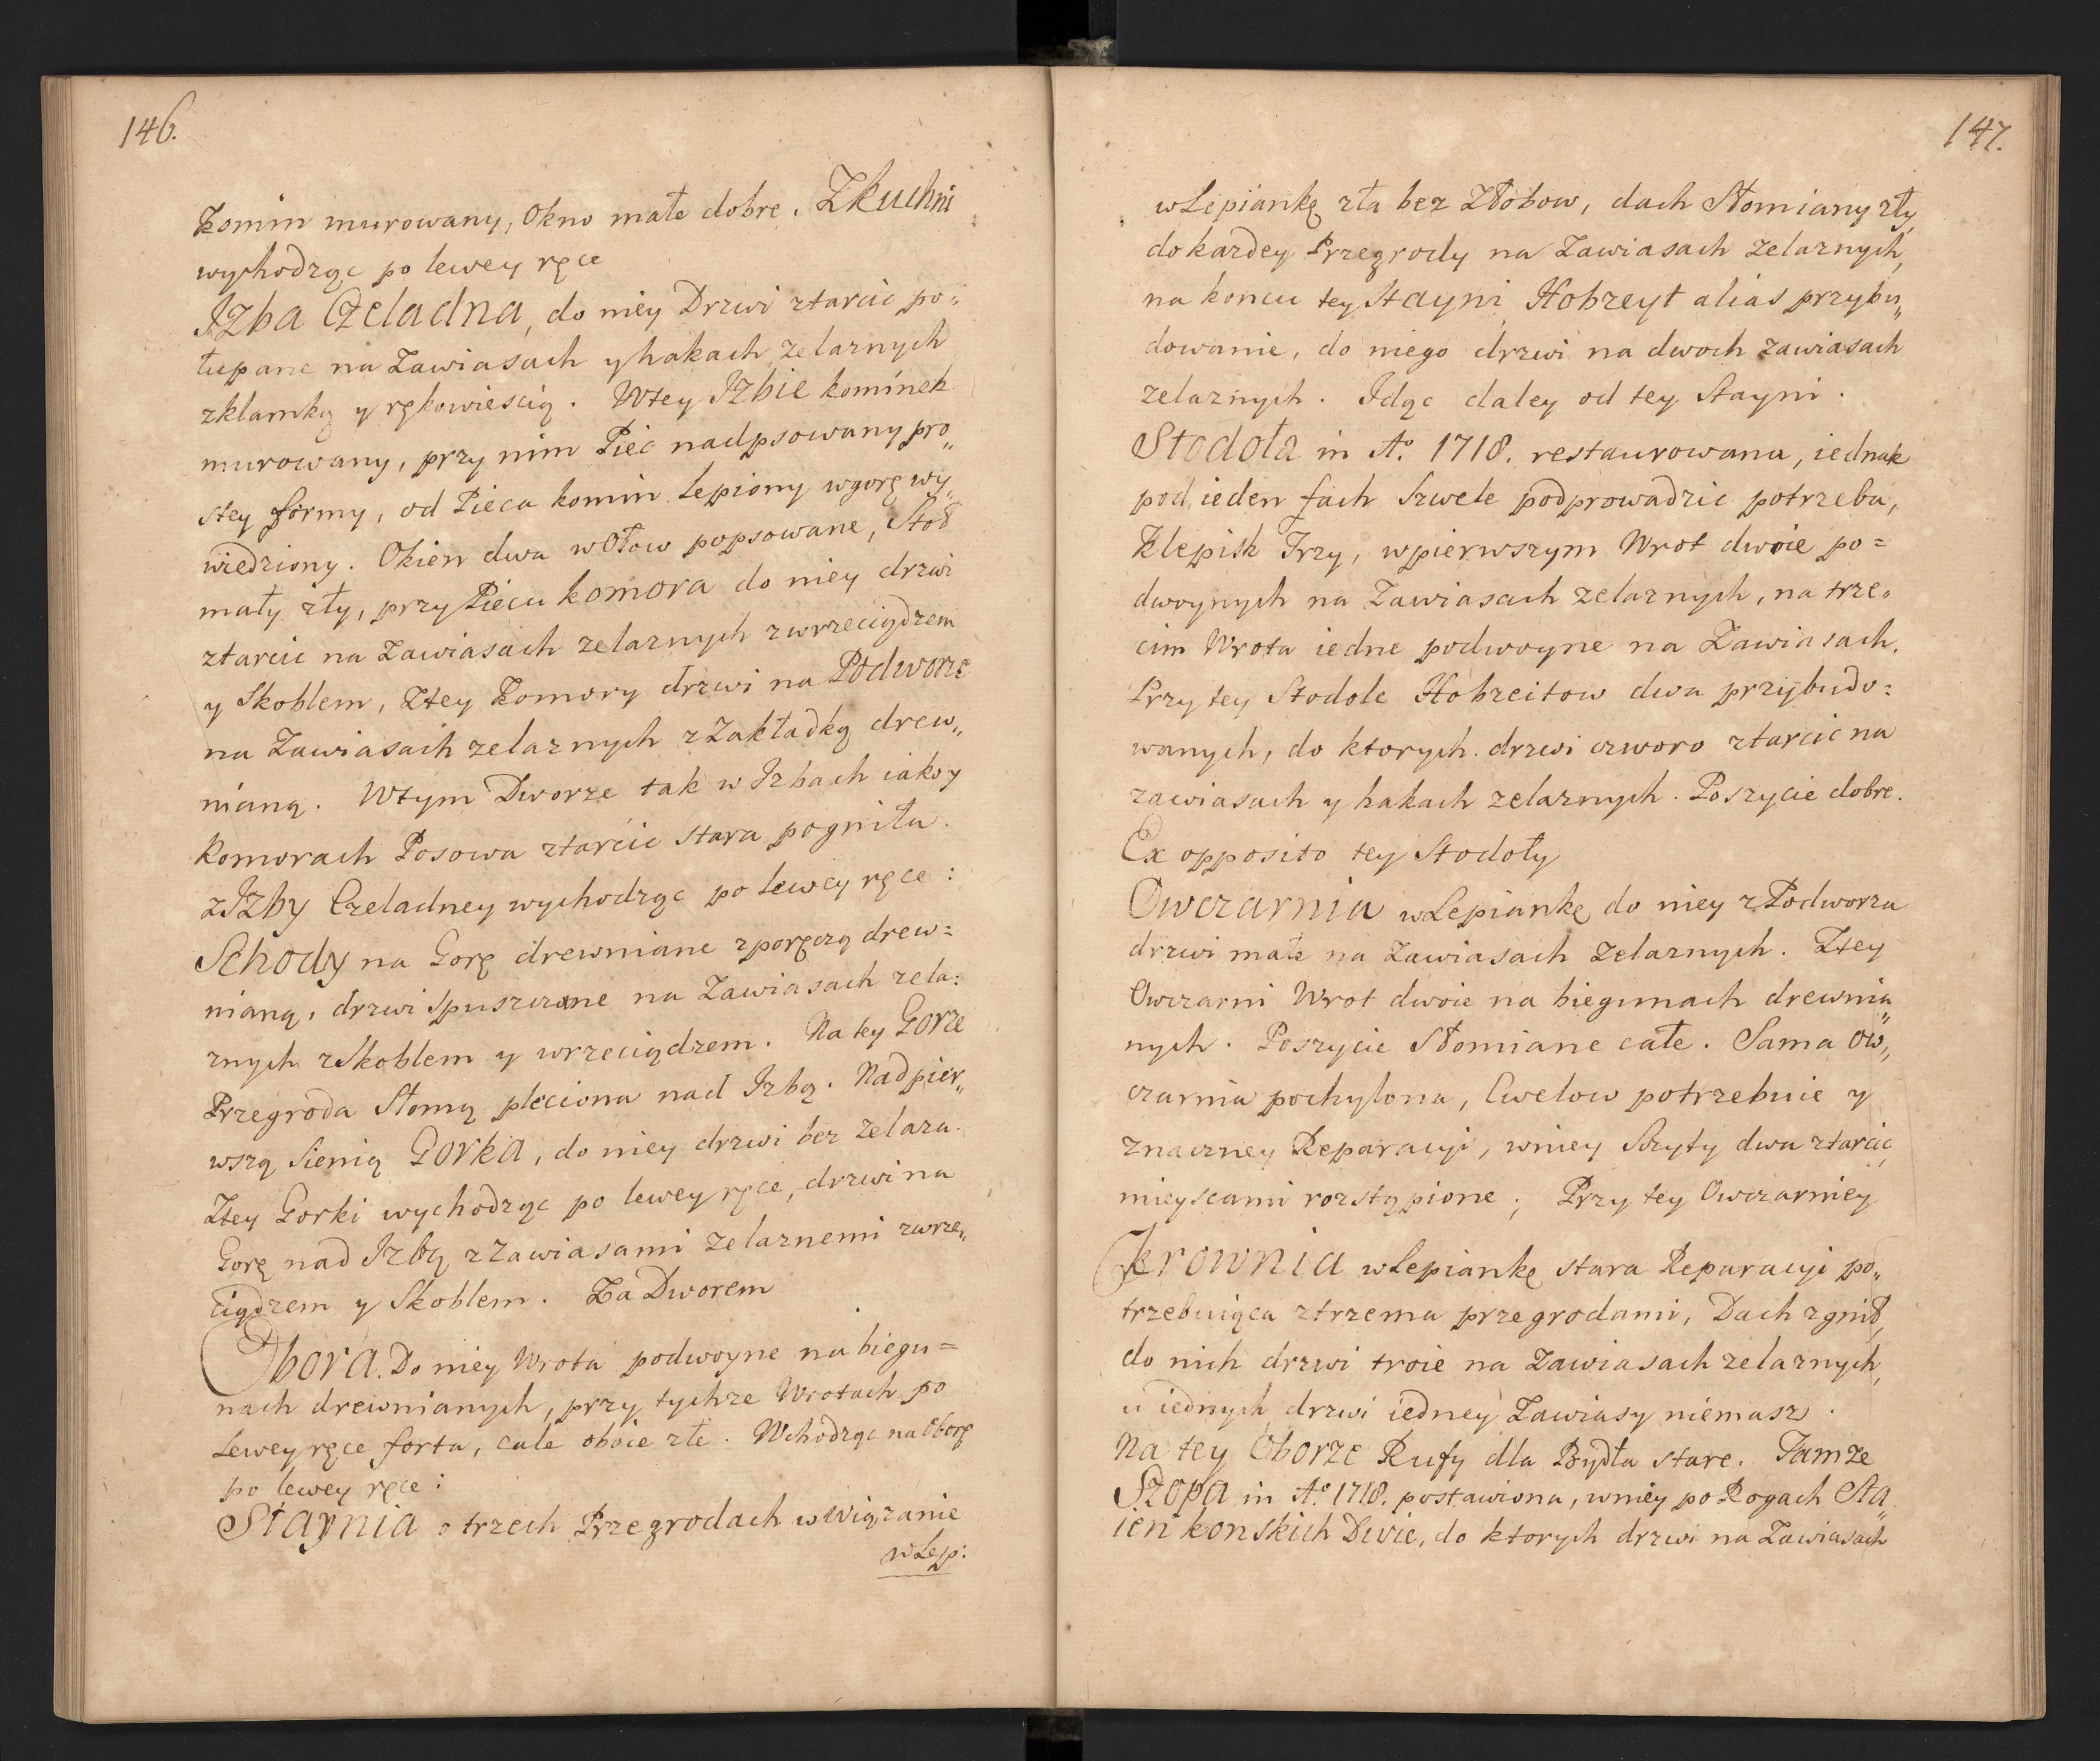 146.
Komin murowany, Okno małe dobre. Zkuchni
wychodząc po lewey ręce
Izba Czeladna, do niey Drzwi ztarcic po„
łupane na Zawiasach y hakach zelaznych
zklamką y rękowieścią. Wtey Izbie kominek
murowany, przy nim Piec nadpsowany pro„
stey formy, od Pieca komin Lepiony wgorę wy„
wiedziony. Okien dwa wOłow popsowane, Stoł
mały zły, przy Piecu komora do niey drzwi
ztarcic na Zawiasach zelaznych zwrzeciądzem
y Skoblem, Ztey Komory drzwi na Podworze
na Zawiasach zelaznych z Zakładką drew„
nianą. Wtym Dworze tak w Izbach iako y
Komorach Posowa ztarcic stara pogniła.
zIzby Czeladney wychodząc po lewey ręce:
Schody na Gorę drewniane zporęczą drew=
nianą, drzwi spuszczane na Zawiasach zela:
znych zSkoblem y wrzeciądzem. Na tey Gorze
Przegroda Słomą pleciona nad Izbą. Nad pier„
wszą Sienią Gorka, do niey drzwi bez zelaza.
Ztey Gorki wychodząc po lewey ręce, drzwi na
Gorę nad Izbą z Zawiasami zelaznemi zwrze„
ciądzem y Skoblem. Za Dworem
Obora. Do niey Wrota podwoyne na biegu=
nach drewnianych, przy tychze Wrotach po
Lewey ręce forta, cale oboie złe. Wchodząc na Oborę
po lewey ręce:
Staynia o trzech Przegrodach w wiązanie
wLep:
147.
wLepiankę zła bez Złobow, dach Słomiany zły,
do kazdey Przegrody na Zawiasach zelaznych,
na koncu tey Stayni Hobzeyt alias przybu„
dowanie, do niego drzwi na dwoch zawiasach
zelaznych. Idąc daley od tey Stayni.
Stodoła in Aº. 1718. restaurowana, iednak
pod ieden fach Szwele podprowadzic potrzeba,
Klepisk Trzy, wpierwszym Wrot dwoie po=
dwoynych na Zawiasach zelaznych, na trze„
cim Wrota iedne podwoyne na Zawiasach.
Przy tey Stodole Hobzeitow dwa przybudo=
wanych, do ktorych drzwi czworo ztarcic na
zawiasach y hakach zelaznych. Poszycie dobre.
Ex opposito tey Stodoły
Owczarnia wLepiankę do niey z Podworza
drzwi małe na Zawiasach Zelaznych. Ztey
Owczarni Wrot dwoie na biegunach drewnia„
nych. Poszycie Słomiane całe. Sama Ow„
czarnia pochylona, Cwelow potrzebuie y
znaczney Reparacyi, wniey Szczyty dwa ztarcic,
mieyscami rozstąpione; Przy tey Owczarniey
Krownia wLepiankę stara Reparacyi po„
trzebuiąca ztrzema przegrodami, Dach zgnił,
do nich drzwi troie na Zawiasach zelaznych,
u iednych drzwi iedney Zawiasy niemasz.
Na tey Oborze Rufy dla Bydła stare. Tamze
Szopa in Aº. 1718. postawiona, wniey po Rogach Sta„
ien konskich Dwie, do ktorych drzwi na Zawiasach